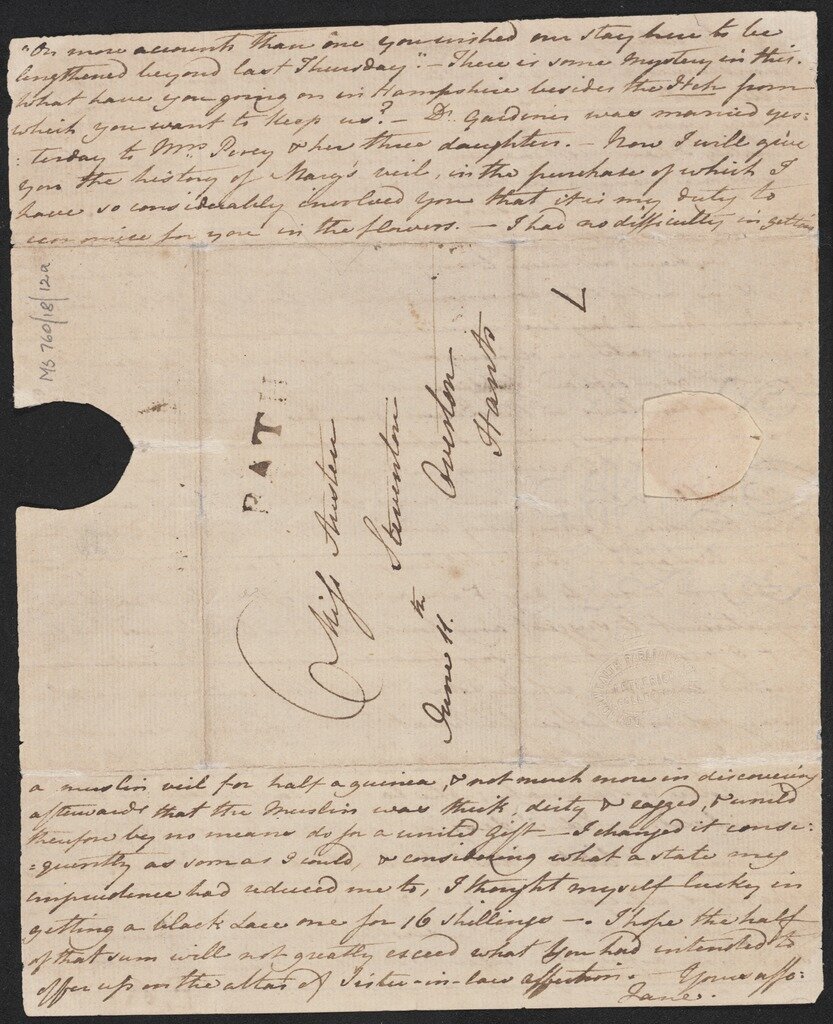 "On more accounts than one you wished our stay here to be
lengthened beyond last Thursday." - There is some Mystery in this.
What have you going on in Hampshire besides the Itch from
which you want to keep us? - Dr. Gardiner was married yes:
:terday to Mrs. Percy & her three daughters. - Now I will give
you the history of Mary's veil, in the purchase of which I
have so considerably involved you that it is my duty to
economise for you in the flowers. - I had no difficulty in getting
MS 760/18/12a
BATH
Miss Austen
Steventon
Overton
Hants
June 11.th
7
a muslin veil for half a guinea, & not much more in discovering
afterwards that the Muslin was thick, dirty & ragged, & would
therefore by no means do for a united Gift - I changed it conse:
:quently as soon as I could, & considering what a state my
imprudence had reduced me to, I thought myself lucky in
getting a black Lace one for 16 shillings -. I hope the half
of that sum will not greatly exceed what You had intended to
offer up on the altar of Sister-in-law affection. - Yours affe:
Jane.